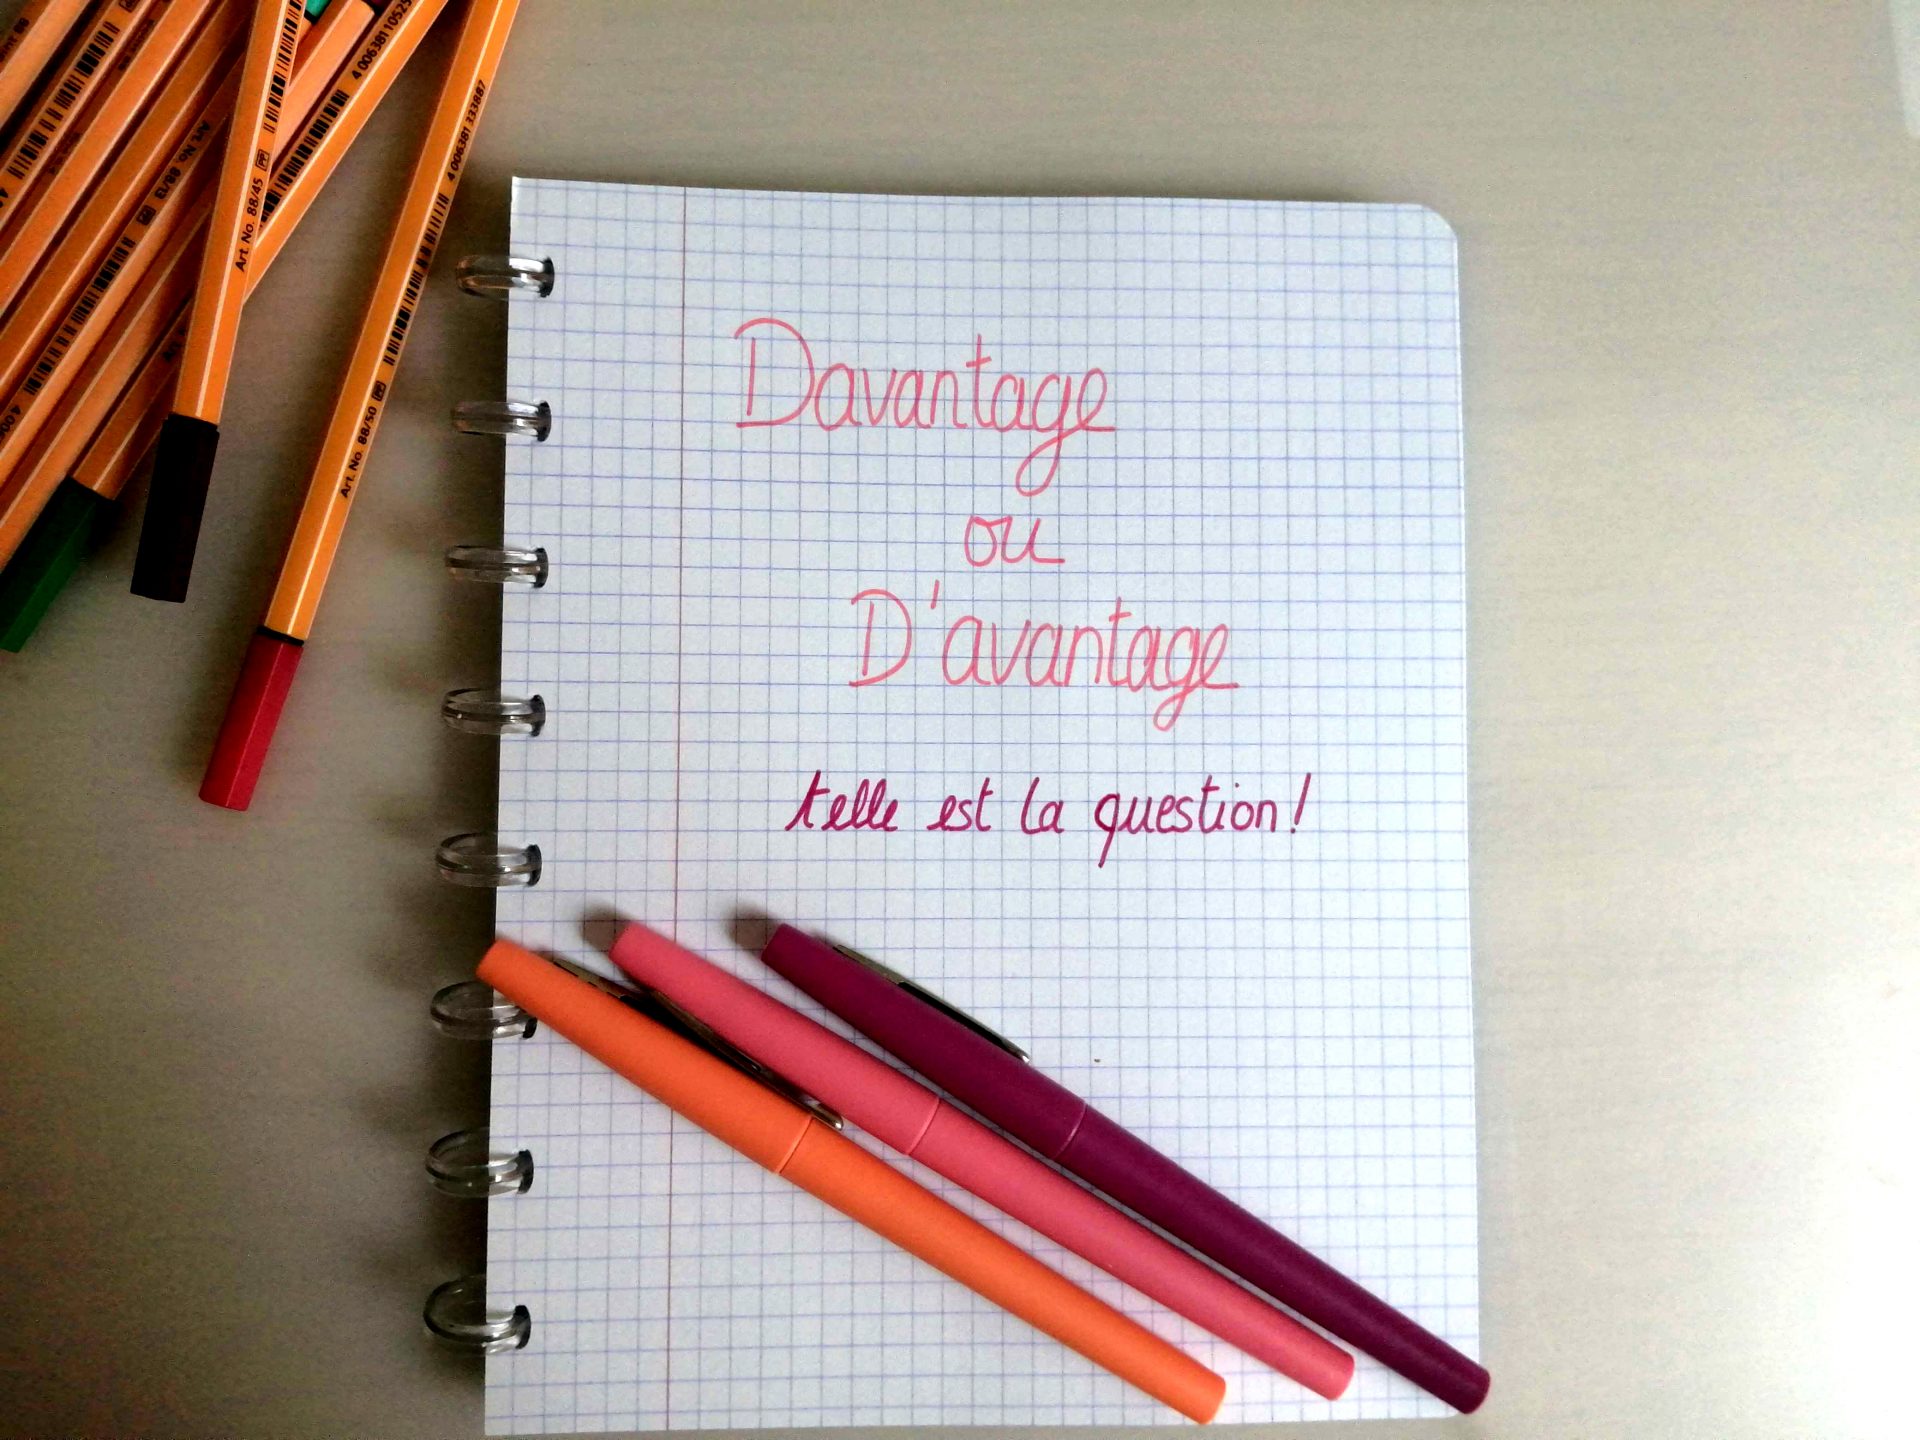 Davantage
ou
D'avantage
telle est la question!
4 006381 333887
Art. No. 88/50
Art. No. 88/45
Art. No. 88/13